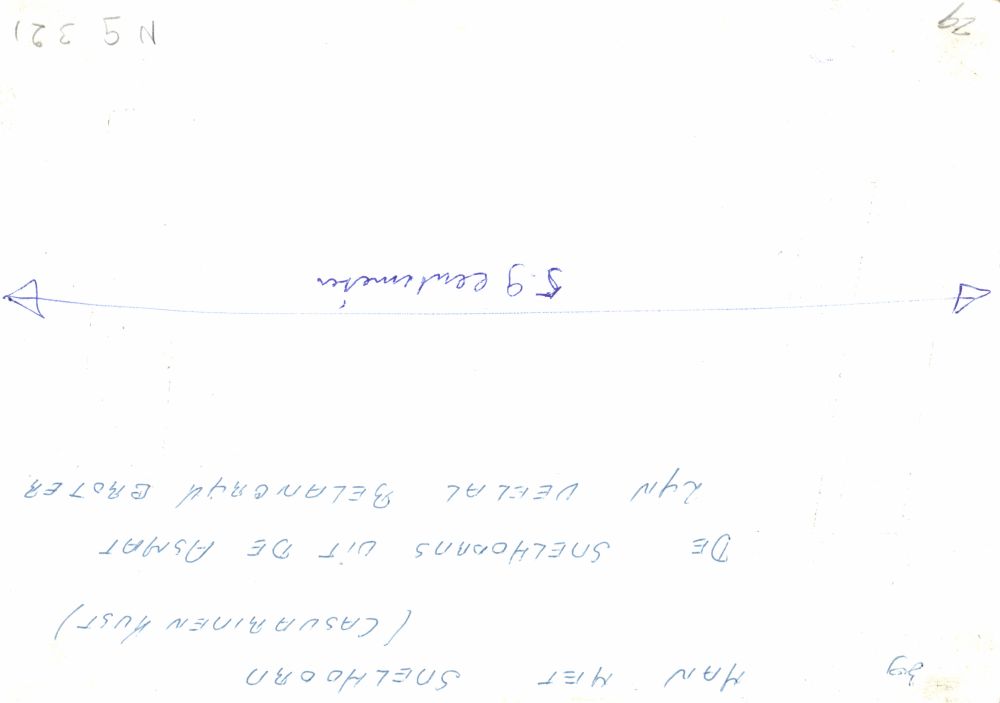 39 MAN MET SNELHOORN
(CASUARINEN KUST)
DE SNELHOORNS UIT DE ASMAT
ZYN VEELAL BELANGRYK GROTER
5.9 centimeter
N 5 321